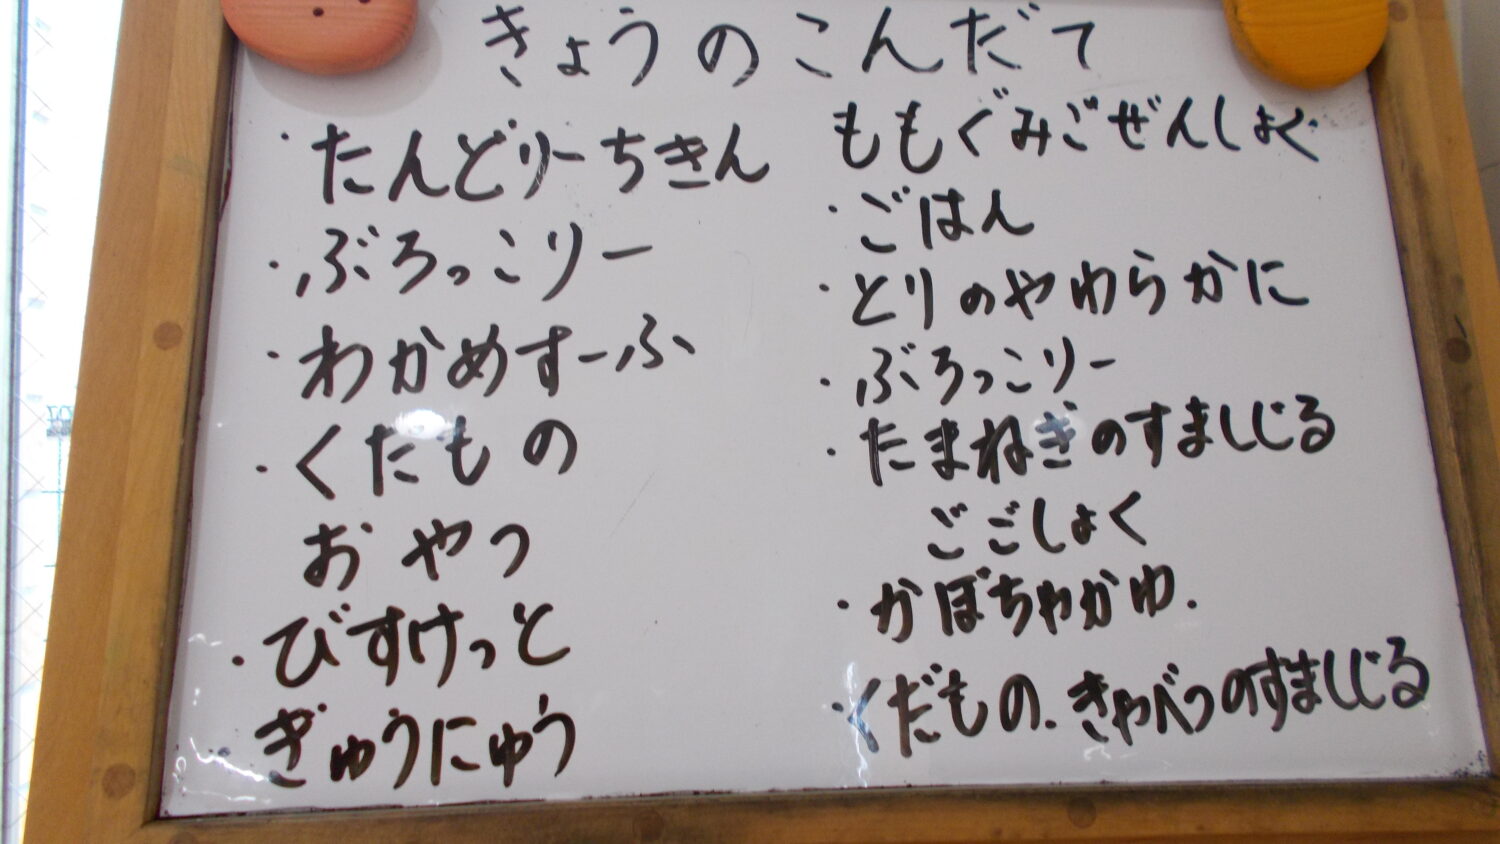 きょうのこんだて
・たんどりーちきん
・ぶろっこりー
・わかめすーふ
・くだもの
おやつ
・びすけっと
ぎゅうにゅう
ももぐみごぜんしょく
・ごはん
・とりのやわらかに
・ぶろっこりー
・たまねぎのすましじる
ごごしょく
・かぼちゃかゆ.
・くだもの.きゃべつのすましじる